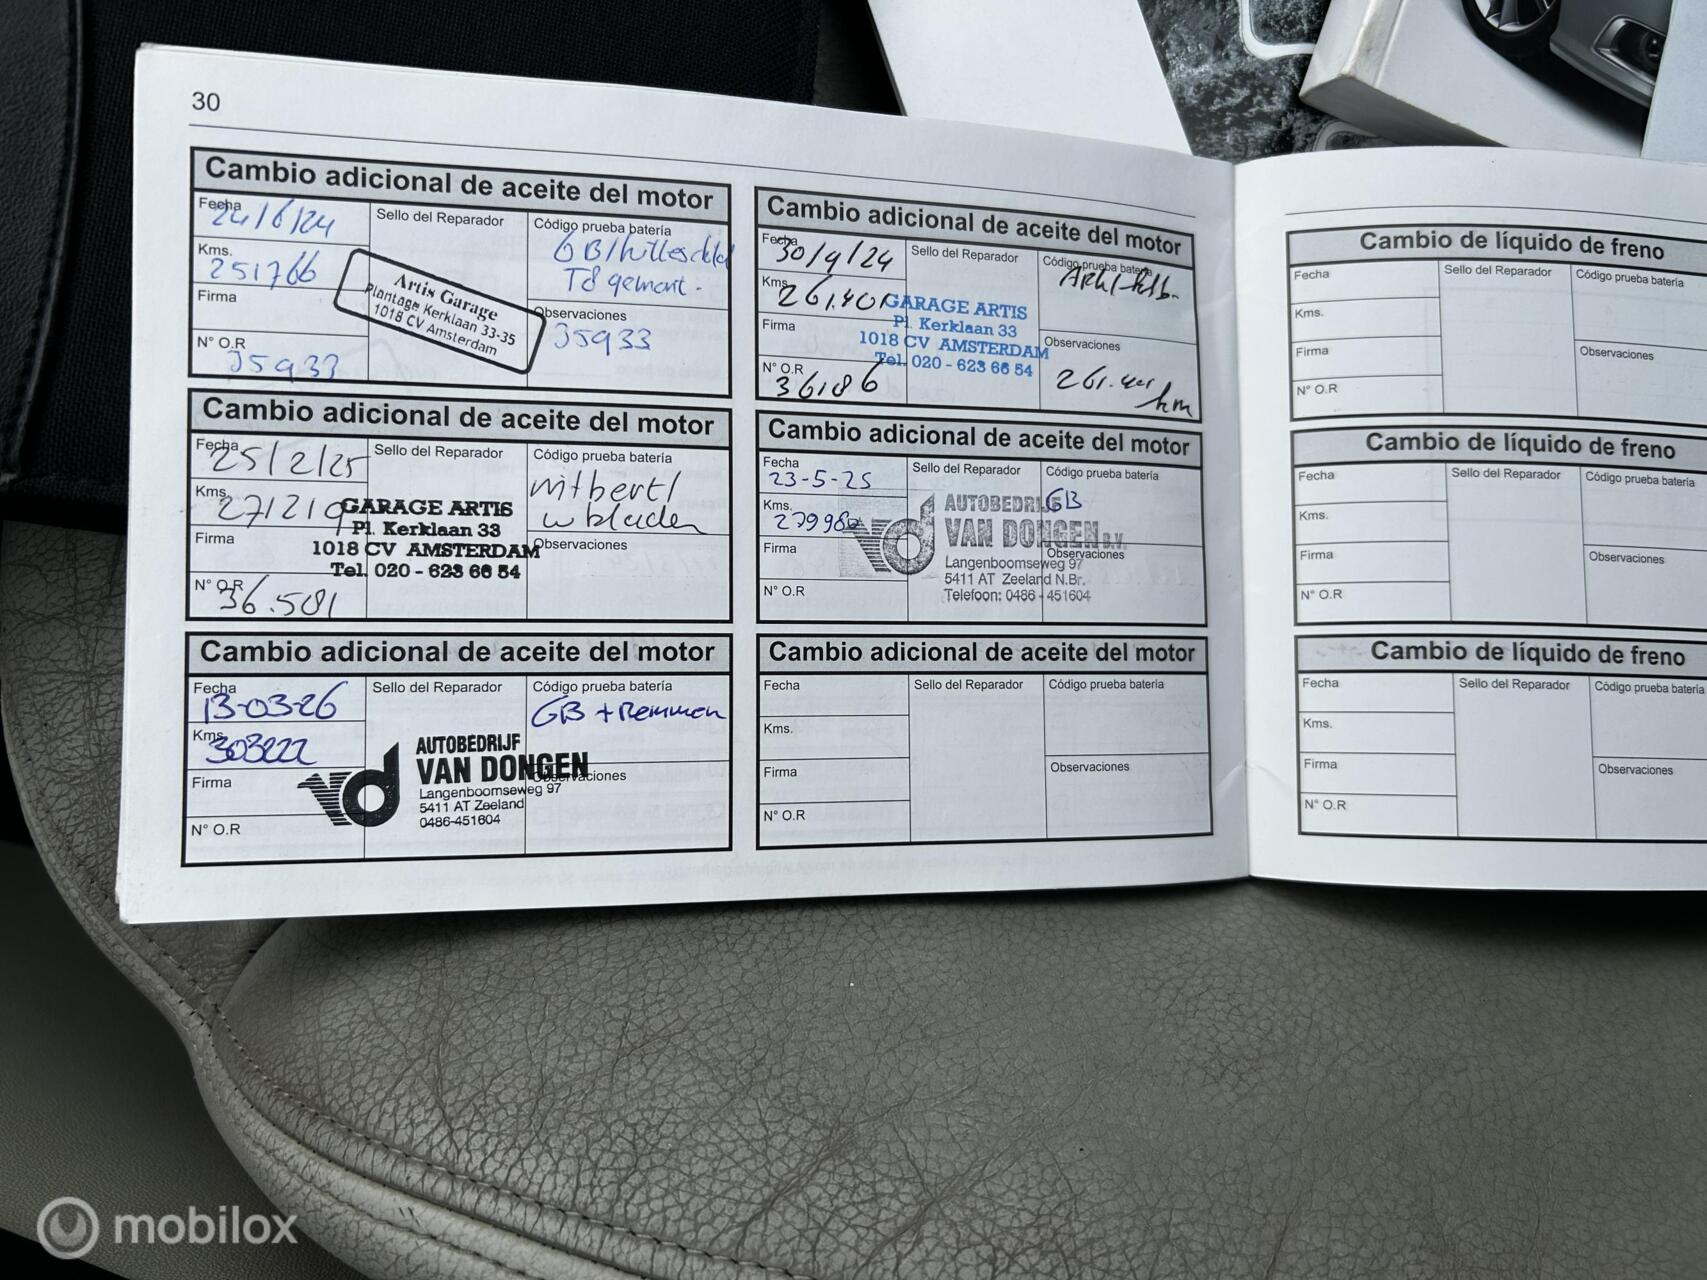 30
Cambio adicional de aceite del motor
Fecha
24/6/24
Kms.
251766
Firma
N° O.R
35933
Sello del Reparador
Artis Garage
Plantage Kerklaan 33-35
1018 CV Amsterdam
Código prueba batería
GB/
T8 gemont.
Observaciones
35933
Cambio adicional de aceite del motor
Fecha
30/9/24
Kms.
261.401
Firma
N° O.R
36186
Sello del Reparador
GARAGE ARTIS
Pl. Kerklaan 33
1018 CV AMSTERDAM
Tel. 020 - 623 66 54
Código prueba batería
Observaciones
km
Cambio adicional de aceite del motor
Fecha
25/2/25
Kms.
271219
Firma
N° O.R
36.581
Sello del Reparador
GARAGE ARTIS
Pl. Kerklaan 33
1018 CV AMSTERDAM
Tel. 020 - 623 66 54
Código prueba batería
w bladen
Observaciones
Cambio adicional de aceite del motor
Fecha
23-5-25
Kms.
279980
Firma
N° O.R
Sello del Reparador
AUTOBEDRIJF
VAN DONGEN B.V.
Langenboomseweg 97
5411 AT Zeeland N.Br.
Telefoon: 0486 - 451604
Código prueba batería
GB
Observaciones
Cambio adicional de aceite del motor
Fecha
13-03-26
Kms.
303222
Firma
N° O.R
Sello del Reparador
AUTOBEDRIJF
VAN DONGEN
Langenboomseweg 97
5411 AT Zeeland
0486-451604
Código prueba batería
GB + Remmen
Observaciones
Cambio adicional de aceite del motor
Fecha
Kms.
Firma
N° O.R
Sello del Reparador
Código prueba batería
Observaciones
Cambio de líquido de freno
Fecha
Kms.
Firma
N° O.R
Sello del Reparador
Código prueba batería
Observaciones
Cambio de líquido de freno
Fecha
Kms.
Firma
N° O.R
Sello del Reparador
Código prueba batería
Observaciones
Cambio de líquido de freno
Fecha
Kms.
Firma
N° O.R
Sello del Reparador
Código prueba batería
Observaciones
mobilox